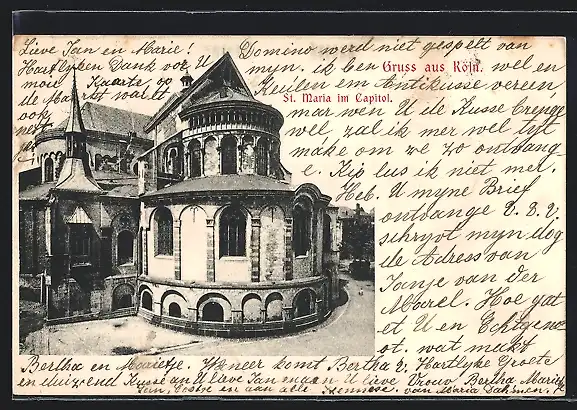 Lieve Jan en Marie!
Hartlyken Dank voor U
mooie Kaarte op
de Markt wardt
ook
Domino werd niet gespelt van
myn. ik ben wel en
Keulen em Antikusse verein,
mar wen U de Kusse brenge
wel, zal ik mer wel tyt
make om ze zo ontvang-
e. Kip lus ik niet mer.
Heb. U myne Brief
ontvange
schryvt myn dog
de Adress van
Janje van der
Marel. Hoe gat
et U en Echtgeno
ot. wat makt
Gruss aus Köln.
St. Maria im Capitol.
Bertha en Marietje. Wneer komt Bertha v. Hartlyke Groete
en duizend Kusse an U lieve Jan maan U lieve Vrouw Bertha Marie
Jan, en aan alle van Maria